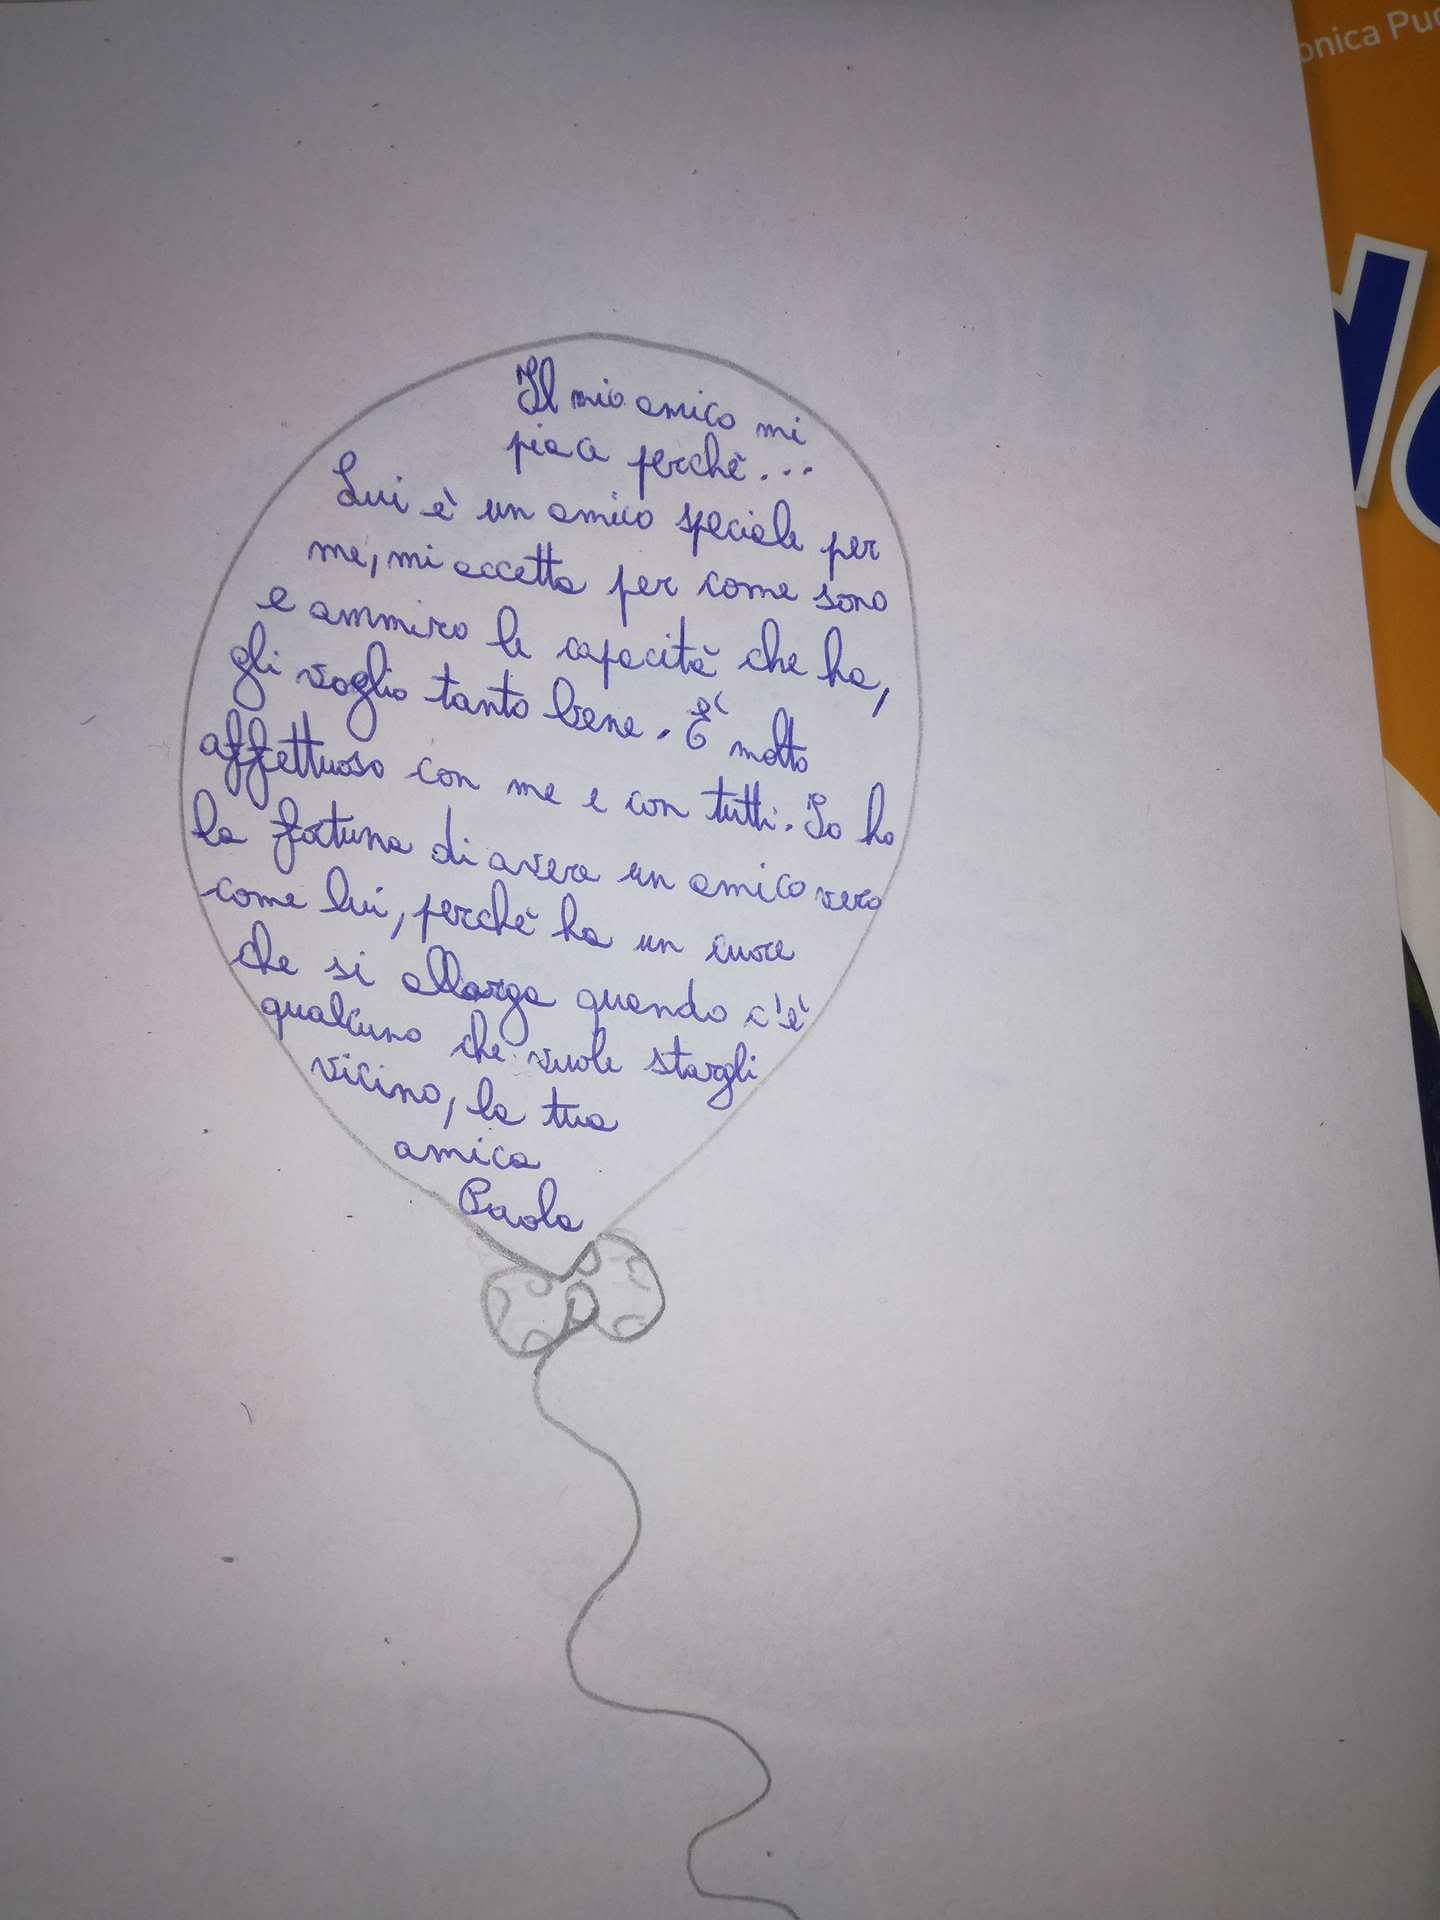 Il mio amico mi
piace perchè...
Lui è un amico speciale per
me, mi accetta per come sono
e ammiro le capacità che ha,
gli voglio tanto bene. È molto
affettuoso con me e con tutti. Io ho
la fortuna di avere un amico vero
come lui, perchè ha un cuore
che si allarga quando c'è
qualcuno che vuole stargli
vicino, la tua
amica
Paola
onica Puc